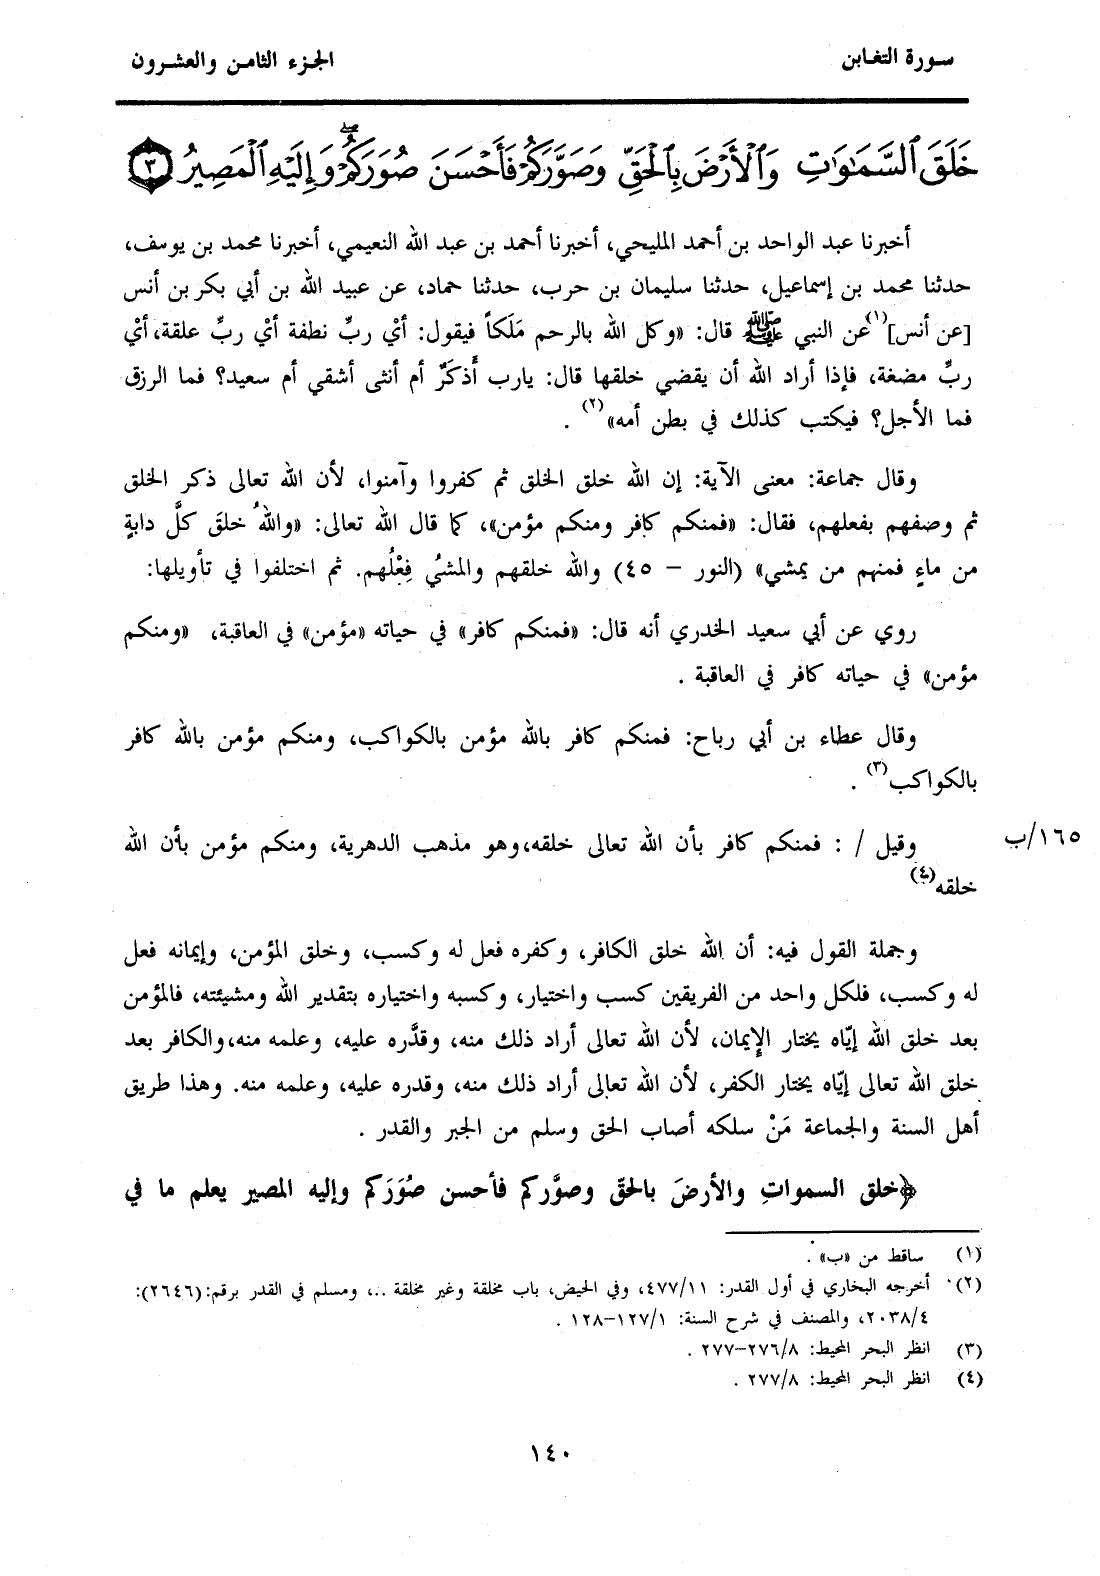 سورة التغابن
الجزء الثامن والعشرون
خَلَقَ ٱلسَّمَٰوَٰتِ وَٱلْأَرْضَ بِٱلْحَقِّ وَصَوَّرَكُمْ فَأَحْسَنَ صُوَرَكُمْ ۖ وَإِلَيْهِ ٱلْمَصِيرُ ٣
أخبرنا عبد الواحد بن أحمد المليحي، أخبرنا أحمد بن عبد الله النعيمي، أخبرنا محمد بن يوسف،
حدثنا محمد بن إسماعيل، حدثنا سليمان بن حرب، حدثنا حماد، عن عبيد الله بن أبي بكر بن أنس
[عن أنس](١) عن النبي ﷺ قال: «وكل الله بالرحم مَلَكاً فيقول: أيْ ربِّ نطفة أيْ ربِّ علقة، أيْ
ربِّ مضغة، فإذا أراد الله أن يقضي خلقها قال: يارب أَذكَرٌ أم أنثى أشقي أم سعيد؟ فما الرزق
فما الأجل؟ فيكتب كذلك في بطن أمه»(٢) .
وقال جماعة: معنى الآية: إن الله خلق الخلق ثم كفروا وآمنوا، لأن الله تعالى ذكر الخلق
ثم وصفهم بفعلهم، فقال: «فمنكم كافر ومنكم مؤمن»، كما قال الله تعالى: «واللهُ خلقَ كلَّ دابةٍ
من ماءٍ فمنهم من يمشي» (النور – ٤٥) والله خلقهم والمشيُ فِعْلُهم. ثم اختلفوا في تأويلها:
روي عن أبي سعيد الخدري أنه قال: «فمنكم كافر» في حياته «مؤمن» في العاقبة، «ومنكم
مؤمن» في حياته كافر في العاقبة .
وقال عطاء بن أبي رباح: فمنكم كافر بالله مؤمن بالكواكب، ومنكم مؤمن بالله كافر
بالكواكب(٣) .
وقيل / : فمنكم كافر بأن الله تعالى خلقه، وهو مذهب الدهرية، ومنكم مؤمن بأن الله
١٦٥/ب
خلقه(٤)
وجملة القول فيه: أن الله خلق الكافر، وكفره فعل له وكسب، وخلق المؤمن، وإيمانه فعل
له وكسب، فلكل واحد من الفريقين كسب واختيار، وكسبه واختياره بتقدير الله ومشيئته، فالمؤمن
بعد خلق الله إيّاه يختار الإيمان، لأن الله تعالى أراد ذلك منه، وقدَّره عليه، وعلمه منه، والكافر بعد
خلق الله تعالى إيّاه يختار الكفر، لأن الله تعالى أراد ذلك منه، وقدره عليه، وعلمه منه. وهذا طريق
أهل السنة والجماعة مَنْ سلكه أصاب الحق وسلم من الجبر والقدر .
﴿خلق السموات والأرضَ بالحقّ وصوَّركم فأحسن صُوَرَكم وإليه المصير يعلم ما في
(١) ساقط من «ب» .
(٢) أخرجه البخاري في أول القدر: ٤٧٧/١١، وفي الحيض، باب مخلقة وغير مخلقة ..، ومسلم في القدر برقم: (٢٦٤٦):
٢٠٣٨/٤، والمصنف في شرح السنة: ١٢٧/١–١٢٨ .
(٣) انظر البحر المحيط: ٢٧٦/٨–٢٧٧ .
(٤) انظر البحر المحيط: ٢٧٧/٨ .
١٤٠